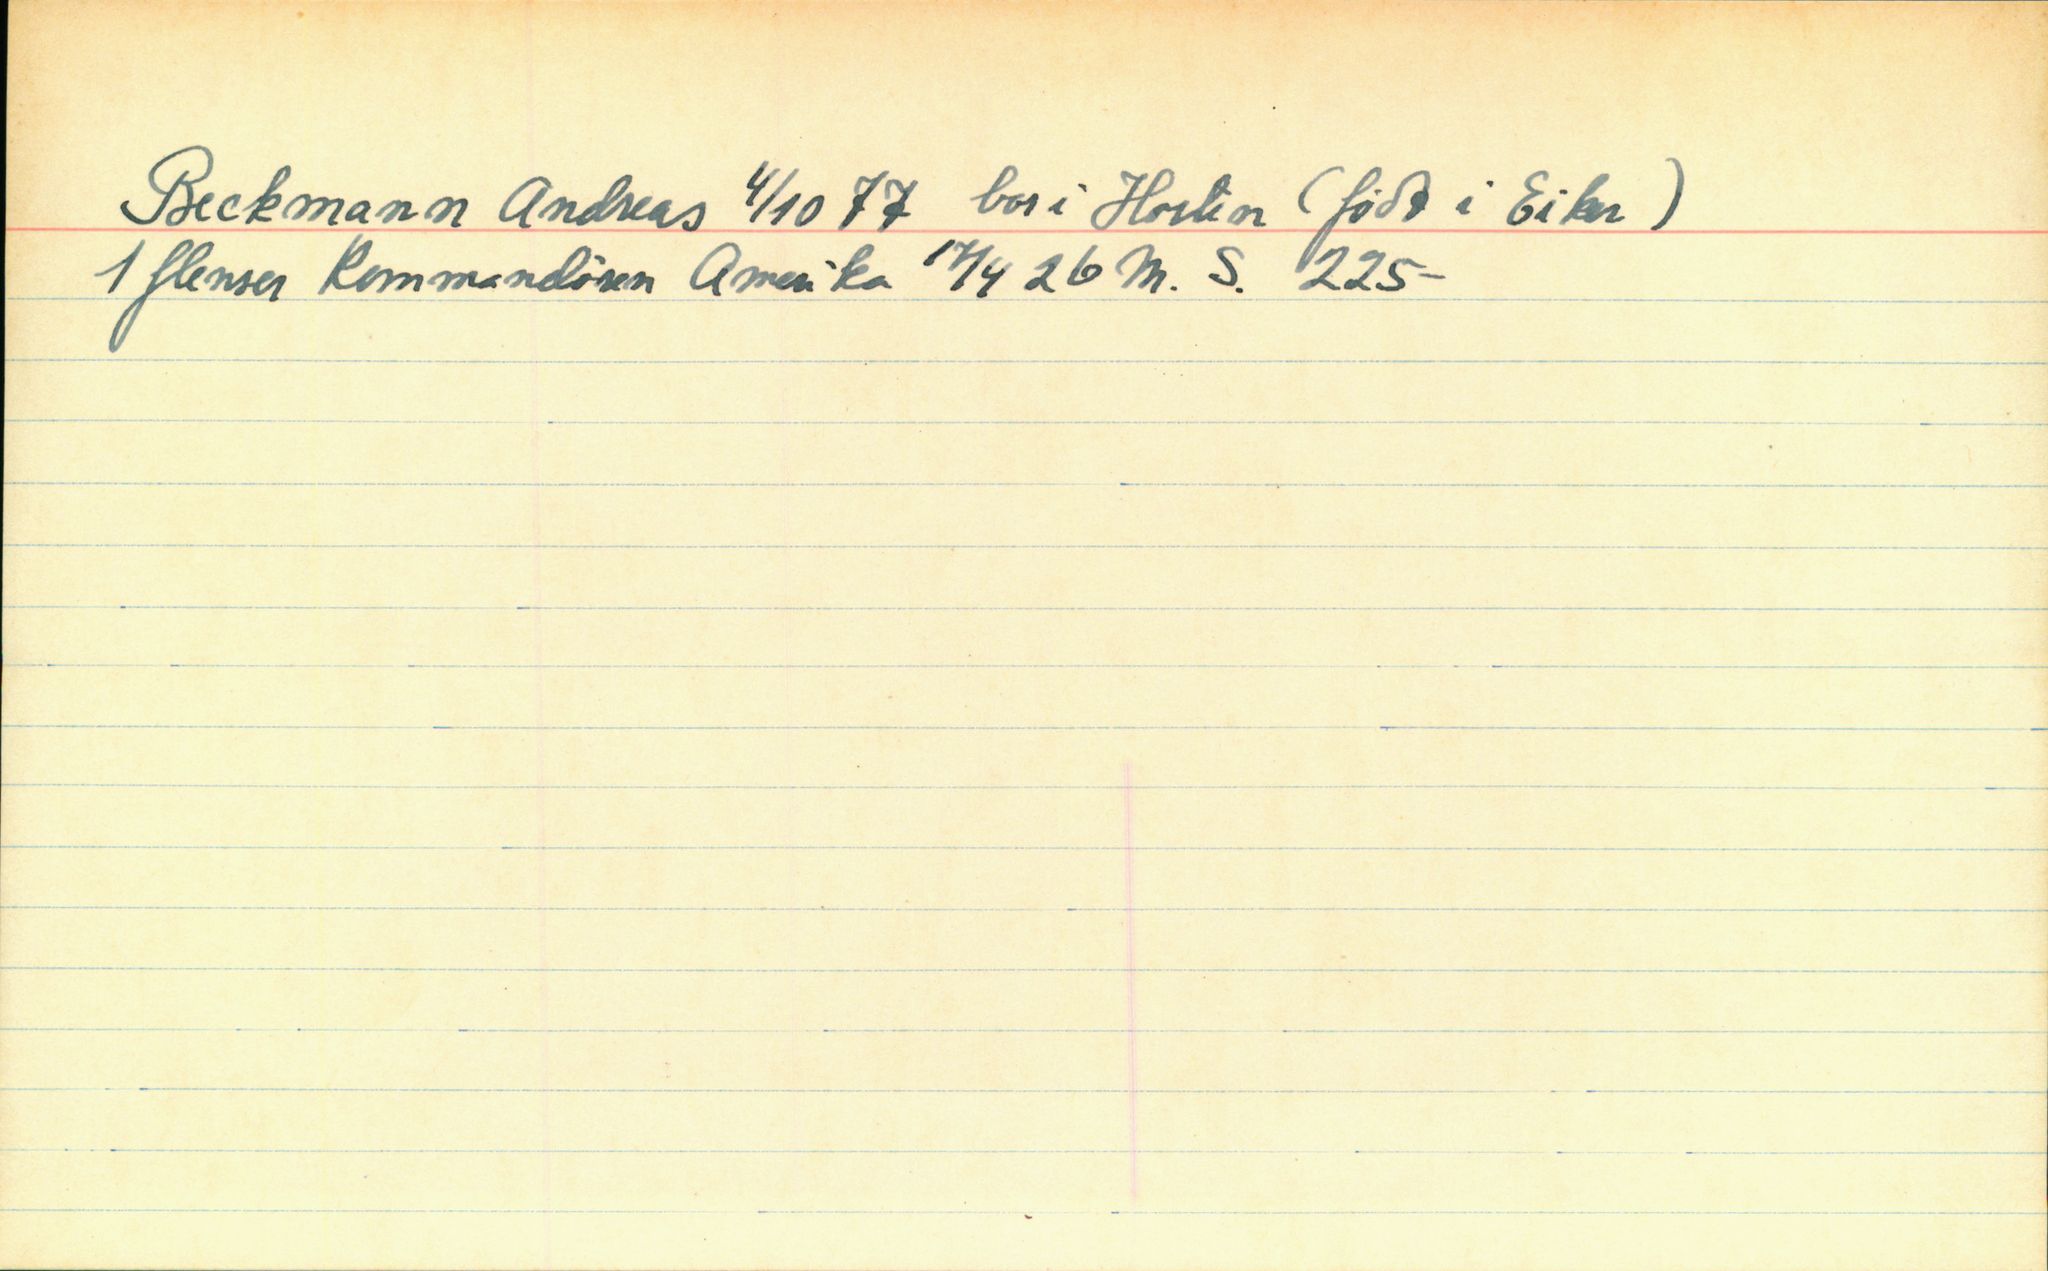 Beckmann Andreas 4/10 77 bor i Horten (född i Eiker)
1 flenser Kommandören Amerika 17/4 26 M. S. 225-